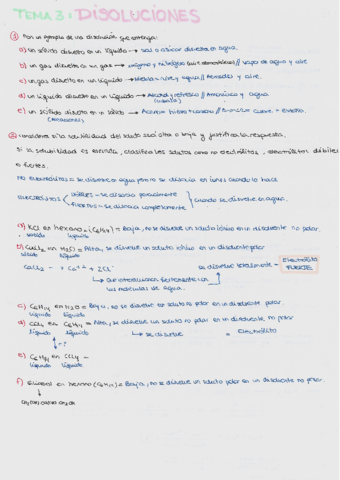 TEMA 3: DISOLUCIONES
① Pon un ejemplo de una disolución que contenga:
a) Un sólido disuelto en un líquido → sal o azúcar disuelta en agua.
b) un gas disuelto en un gas → oxígeno y nitrógeno // vapor de agua y aire
c) un gas disuelto en un líquido → // y aire.
d) un líquido disuelto en un líquido → Alcohol y refresco // Amoniaco y agua
e) un sólido disuelto en un sólido → Acero = hierro + carbono // Bronce = cobre + estaño.
(aleaciones)
② considera si la solubilidad del soluto será alta o baja y justifica la respuesta.
Si la solubilidad es elevada, clasifica los solutos como no electrólitos, electrólitos débiles
o fuertes.
No electrólitos = se disuelve en agua pero no se disocia en iones cuando lo hace
Electrólitos débiles = se disocia parcialmente
fuertes = se disocia completamente
cuando se disuelven en agua.
a) KCl en hexano (C6H14) = Baja, no se disuelve un soluto iónico en un disolvente no polar.
sólido líquido
b) CaCl2 en H2O = Alta, se disuelve un soluto iónico en un disolvente polar
sólido líquido
CaCl2 → Ca2+ + 2Cl- se disuelve totalmente = Electrólito FUERTE
→ con las moléculas de agua.
c) C6H14 en H2O = Baja, no se disuelve un soluto no polar en un disolvente polar.
líquido líquido
d) CCl4 en C6H14 = Alta, se disuelve un soluto no polar en un disolvente no polar
líquido líquido → se disuelve = electrólito
e) C6H14 en CCl4 =
líquido líquido
f) en hexano (C6H14) = Baja, no se disuelve un soluto polar en un disolvente no polar.